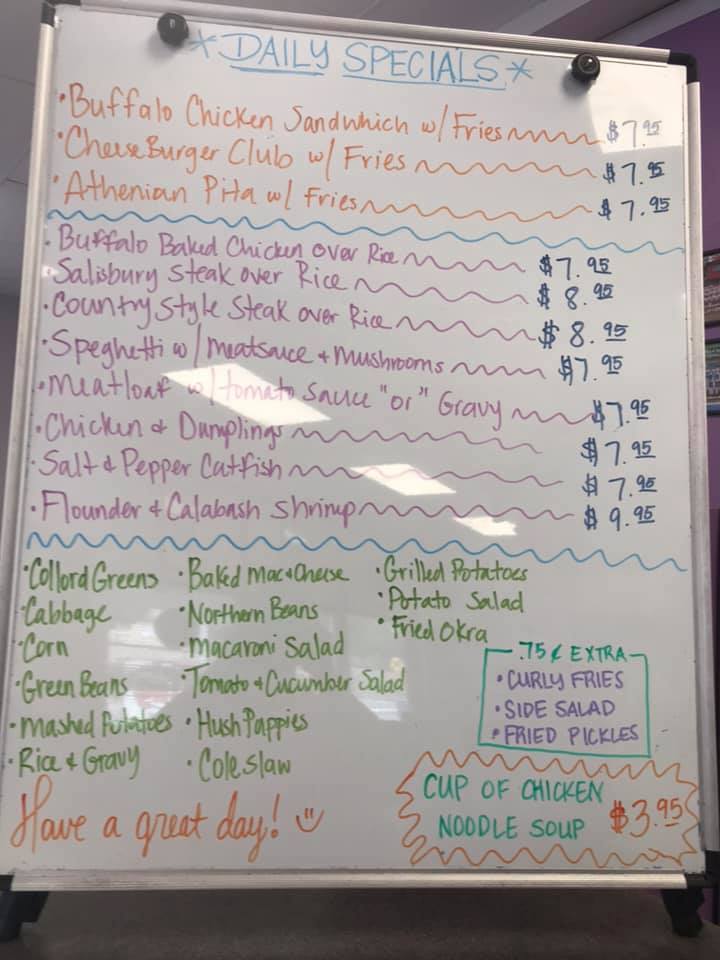 *DAILY SPECIALS*
•Buffalo Chicken Sandwhich w/ Fries $7.95
•CheeseBurger Club w/ Fries $7.95
•Athenian Pita w/ Fries $7.95
•Buffalo Baked Chicken over Rice $7.95
•Salisbury Steak over Rice $8.95
•Country Style Steak over Rice $8.95
•Speghetti w/ meatsauce + mushrooms $7.95
•Meatloaf w/ tomato sauce "or" Gravy $7.95
•Chicken & Dumplings $7.95
•Salt & Pepper Catfish $7.95
•Flounder & Calabash Shrimp $9.95
•Collord Greens •Baked Mac + Cheese •Grilled Potatoes
•Cabbage •Northern Beans •Potato Salad
•Corn •Macaroni Salad •Fried Okra
•Green Beans •Tomato + Cucumber Salad
•Mashed Potatoes •Hush Puppies
•Rice & Gravy •Coleslaw
.75¢ EXTRA
•CURLY FRIES
•SIDE SALAD
•FRIED PICKLES
Have a great day! :)
CUP OF CHICKEN
NOODLE SOUP $3.95